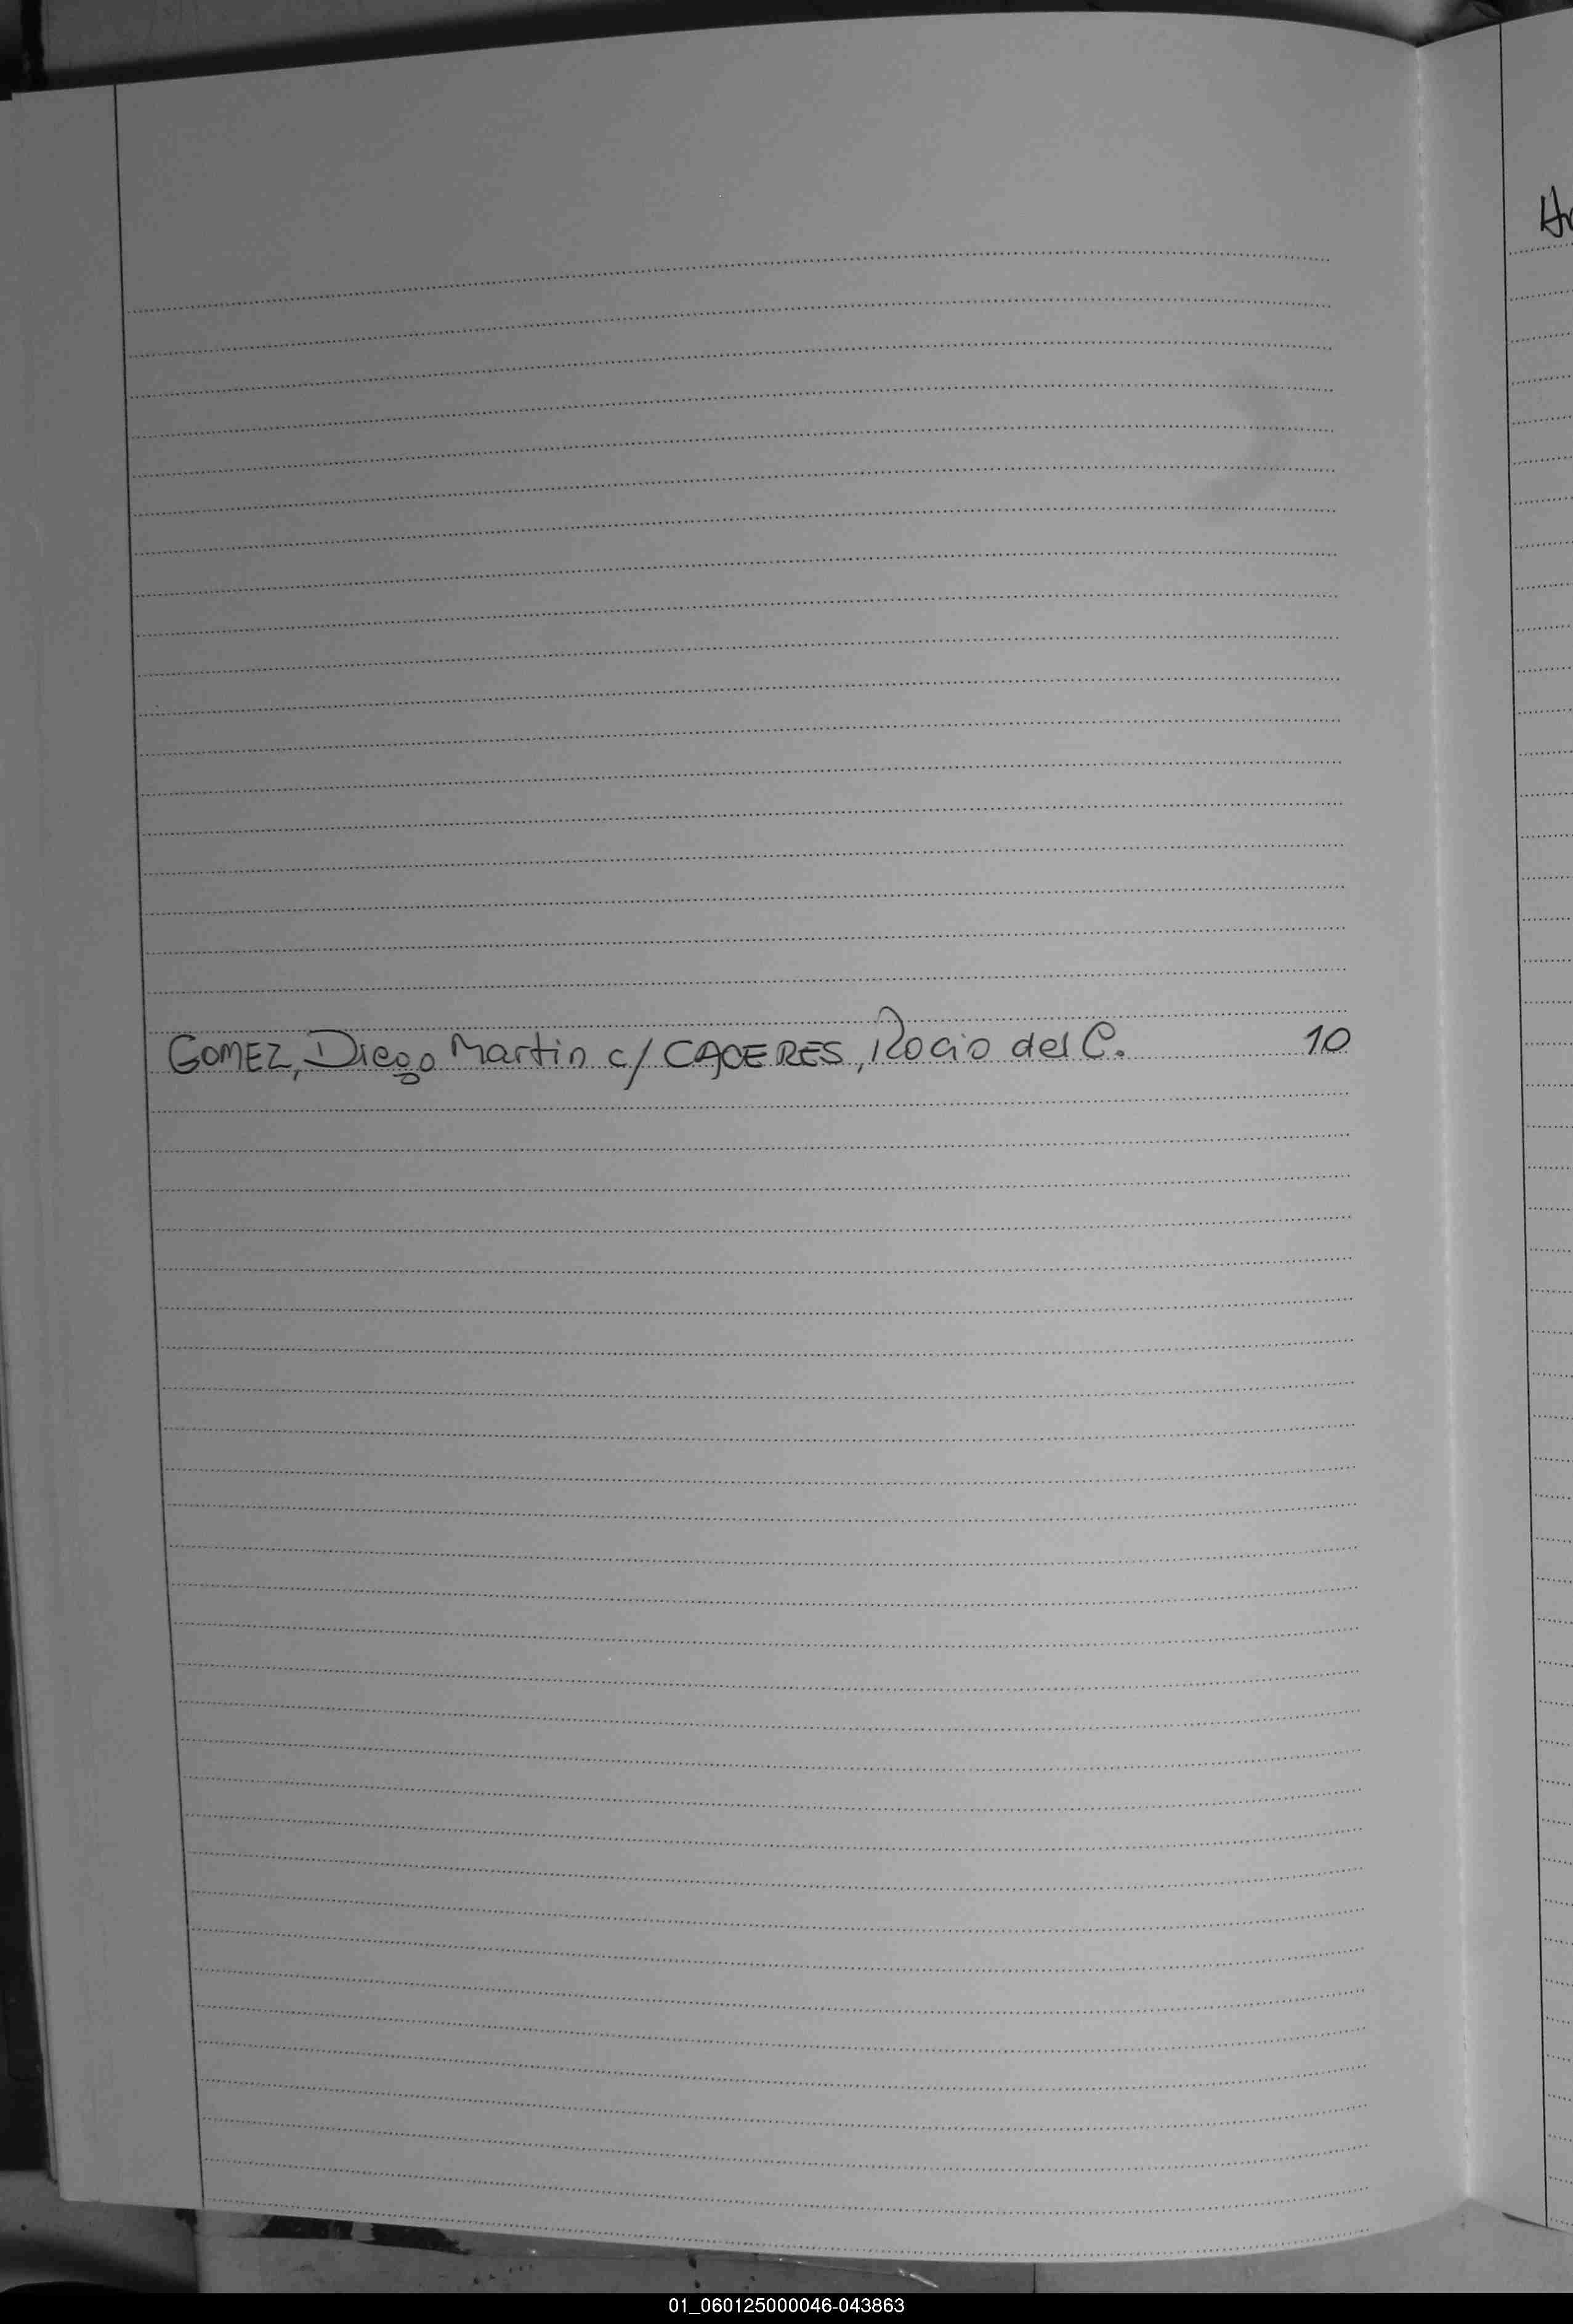 GOMEZ, Diego Martin c/ CACERES, Rocio del C. 10
01_060125000046-043863